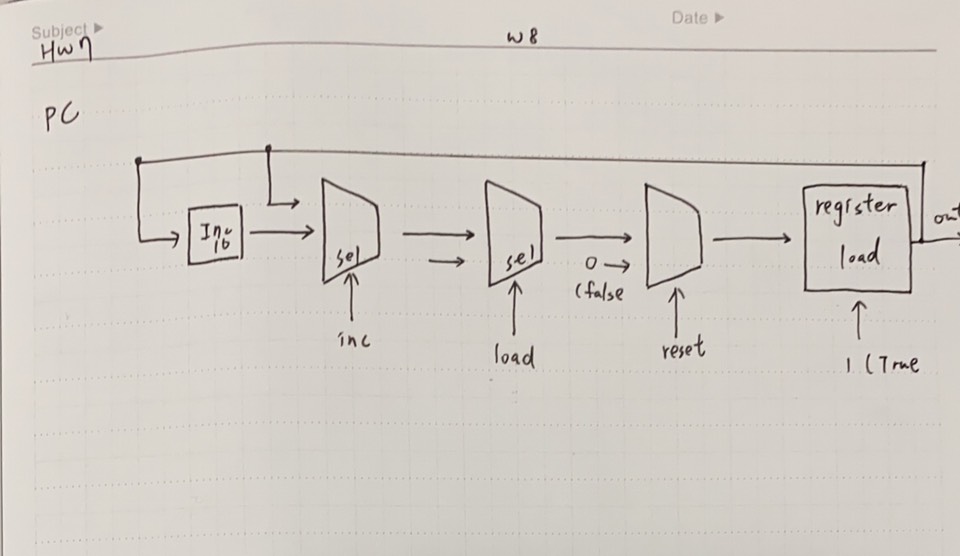 Subject ▶
Date ▶
HW7
W8
PC
Inc
16
sel
inc
sel
load
0
(false
reset
register
load
1 (True
out